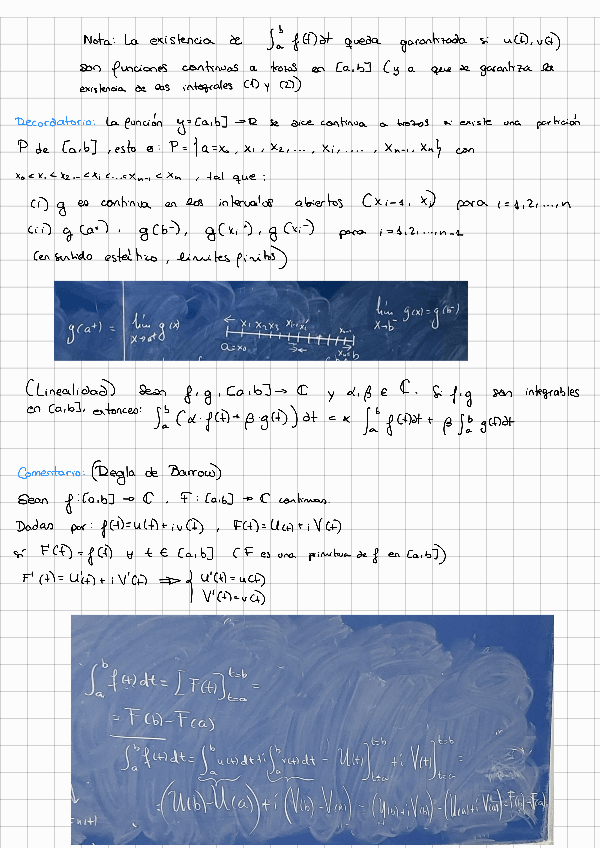 Nota: La existencia de ∫_a^b f(t)dt queda garantizada si u(t), v(t)
son funciones continuas a trozos en [a,b] (ya que se garantiza la
existencia de las integrales (1) y (2))
Recordatorio: La función y=[a,b] → R se dice continua a trozos si existe una partición
P de [a,b], esto es: P = {a=x₀, x₁, x₂, ..., xᵢ, ..., xₙ₋₁, xₙ} con
x₀<x₁<x₂...<xᵢ<...<xₙ₋₁<xₙ, tal que:
(i) g es continua en los intervalos abiertos (xᵢ₋₁, xᵢ) para i=1,2,...,n
(ii) g(a⁺), g(b⁻), g(xᵢ⁺), g(xᵢ⁻) para i=1,2,...,n-1
(en sentido estricto, límites finitos)
g(a⁺) = lím_{x→a⁺} g(x)
x₁ x₂ x₃
a=x₀
lím_{x→b⁻} g(x) = g(b⁻)
(Linealidad) Sean f,g, [a,b] → ℂ y α,β ∈ ℂ. Si f,g son integrables
en [a,b], entonces: ∫_a^b (α·f(t)+β·g(t))dt = α ∫_a^b f(t)dt + β ∫_a^b g(t)dt
Comentario: (Regla de Barrow)
Sean f:[a,b] → ℂ, F:[a,b] → ℂ continuas.
Dadas por: f(t)=u(t)+iv(t), F(t)=U(t)+iV(t)
si F'(t)=f(t) ∀ t ∈ [a,b] (F es una primitiva de f en [a,b])
F'(t)=U'(t)+iV'(t) ⇒ { U'(t)=u(t)
V'(t)=v(t)
∫_a^b f(t)dt = [F(t)]_{t=a}^{t=b} =
= F(b)-F(a)
∫_a^b f(t)dt = ∫_a^b u(t)dt+i∫_a^b v(t)dt = U(t)]_{t=a}^{t=b} + i V(t)]_{t=a}^{t=b} =
=(U(b)-U(a))+i(V(b)-V(a)) = (U(b)+iV(b))-(U(a)+iV(a))=F(b)-F(a)
=u(t)